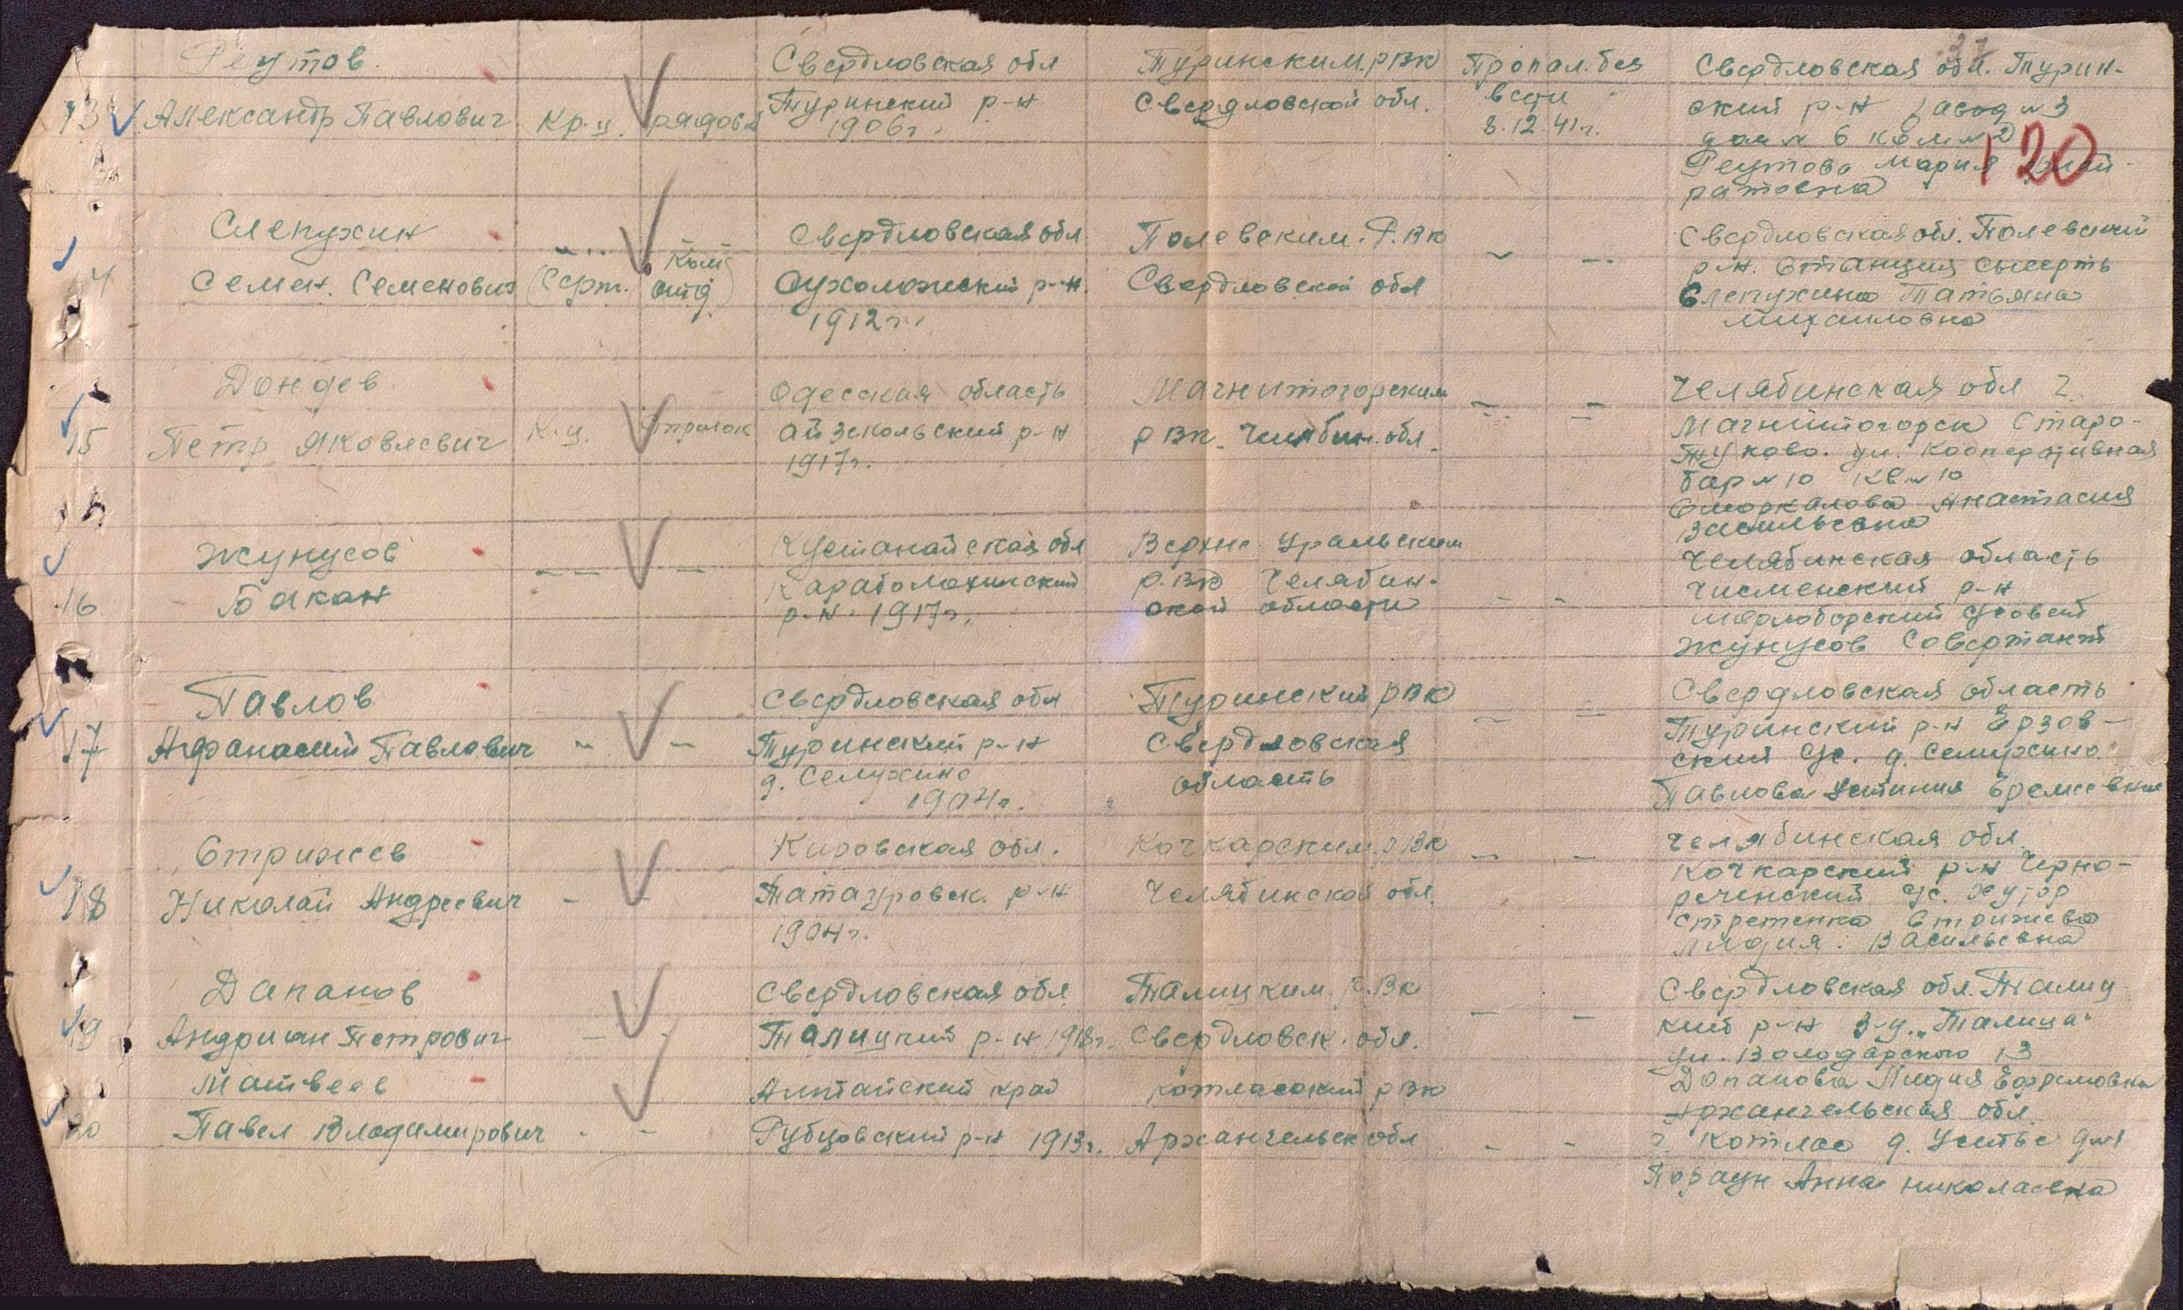 27
Реутов
13 Александр Павлович
Кр-ц. рядов.
Свердловская обл
Туринский р-н
1906г.
Туринским РВК
Свердловской обл.
Пропал. без
вести
8.12.41г.
Свердловская обл. Турин-
ский р-н завод №3
дом №6 ком №2
Реутова Мария
120
Слепухин
Семен. Семенович
(Серж. Ком
отд)
Свердловская обл
Сухоложский р-н.
1912г.
Полевским. Р.ВК
Свердловской обл
Свердловская обл. Полевской
р-н. Станция Сысерть
Слепухина Татьяна
Михаиловна
Дондев
15 Петр Яковлевич
К-ц. Стрелок
Одесская область
р-н
1917г.
Магнитогорским
РВК. Челябин. обл.
Челябинская обл г.
Магнитогорск Старо-
Туково. ул. Кооперативная
бар №10 кв №10
Анастасия
Васильевна
Жунусов
16 Бакан
Кустанайская обл
р-н. 1917г.
Верхне-Уральским
Р.ВК Челябин-
ской области
Челябинская область
р-н
Жунусов
Павлов
17 Афанасий Павлович
Свердловская обл
Туринский р-н
д. Селухино
1904г.
Туринский РВК
Свердловская
область
Свердловская область
Туринский р-н Ерзов-
ский с/с. д. Селухино
Павлова Устиния Еремеевна
Стрижев
18 Николай Андреевич
Кировская обл.
Татауровск. р-н
1904г.
Кочкарским РВК
Челябинской обл.
Челябинская обл.
Кочкарский р-н Черно-
реченский с/с. Хутор
Стретенка Стрижева
Лидия. Васильевна
Дапанов
19 Андриан Петрович
Свердловская обл
Талицкий р-н 1918г.
Талицким. Р.ВК
Свердловск. обл.
Свердловская обл. Талиц
кий р-н з-д. "Талица"
ул. Володарского 13
Дапанова Лидия Ефремовна
Матвеев
20 Павел Владимирович
Алтайский край
Рубцовский р-н 1913г.
Котласский РВК
Архангельск обл
Архангельская обл.
г. Котлас д. Устье д №1
Анна Николаевна